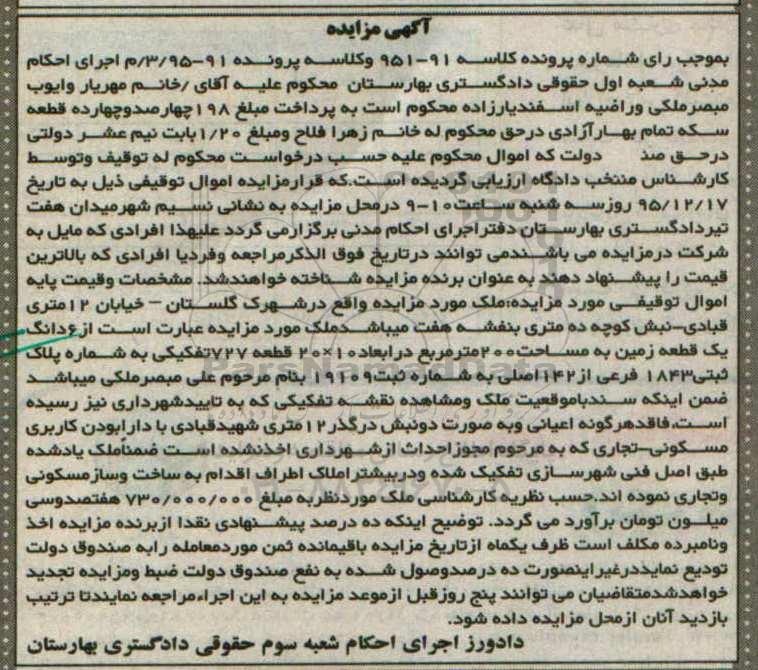 آگهی مزایده
بموجب رای شماره پرونده کلاسه ۹۱-۹۵۱ وکلاسه پرونده ۹۱-۳/۹۵/م اجرای احکام
مدنی شعبه اول حقوقی دادگستری بهارستان محکوم علیه آقای /خانم مهریار وایوب
مبصرملکی وراضیه اسفندیارزاده محکوم است به پرداخت مبلغ ۱۹۸چهارصدوچهارده قطعه
سکه تمام بهارآزادی درحق محکوم له خانم زهرا فلاح ومبلغ ۱/۲۰بابت نیم عشر دولتی
درحق صند دولت که اموال محکوم علیه حسب درخواست محکوم له توقیف وتوسط
کارشناس منتخب دادگاه ارزیابی گردیده است.که قرارمزایده اموال توقیفی ذیل به تاریخ
۹۵/۱۲/۱۷ روزسه شنبه ساعت۱۰-۹ درمحل مزایده به نشانی نسیم شهرمیدان هفت
تیردادگستری بهارستان دفتراجرای احکام مدنی برگزارمی گردد علیهذا افرادی که مایل به
شرکت درمزایده می باشندمی توانند درتاریخ فوق الذکرمراجعه وفردیا افرادی که بالاترین
قیمت را پیشنهاد دهند به عنوان برنده مزایده شناخته خواهندشد. مشخصات وقیمت پایه
اموال توقیفی مورد مزایده:ملک مورد مزایده واقع درشهرک گلستان – خیابان ۱۲متری
قبادی-نبش کوچه ده متری بنفشه هفت میباشدملک مورد مزایده عبارت است از۶دانگ
یک قطعه زمین به مساحت۲۰۰مترمربع درابعاد۱۰×۲۰ قطعه ۷۲۷تفکیکی به شماره پلاک
ثبتی۱۸۴۳ فرعی از۱۴۲اصلی به شماره ثبت۱۹۱۰۹ بنام مرحوم علی مبصرملکی میباشد
ضمن اینکه سندباموقعیت ملک ومشاهده نقشه تفکیکی که به تاییدشهرداری نیز رسیده
است،فاقدهرگونه اعیانی وبه صورت دونبش درگذر۱۲متری شهیدقبادی با دارابودن کاربری
مسکونی-تجاری که به مرحوم مجوزاحداث ازشهرداری اخذنشده است ضمناًملک یادشده
طبق اصل فنی شهرسازی تفکیک شده ودربیشتراملاک اطراف اقدام به ساخت وسازمسکونی
وتجاری نموده اند.حسب نظریه کارشناسی ملک موردنظربه مبلغ ۷۳۰/۰۰۰/۰۰۰ هفتصدوسی
میلیون تومان برآورد می گردد. توضیح اینکه ده درصد پیشنهادی نقدا ازبرنده مزایده اخذ
ونامبرده مکلف است ظرف یکماه ازتاریخ مزایده باقیمانده ثمن موردمعامله رابه صندوق دولت
تودیع نمایددرغیراینصورت ده درصدوصول شده به نفع صندوق دولت ضبط ومزایده تجدید
خواهدشدمتقاضیان می توانند پنج روزقبل ازموعد مزایده به این اجراءمراجعه نمایندتا ترتیب
بازدید آنان ازمحل مزایده داده شود.
دادورز اجرای احکام شعبه سوم حقوقی دادگستری بهارستان
ParsNamadData